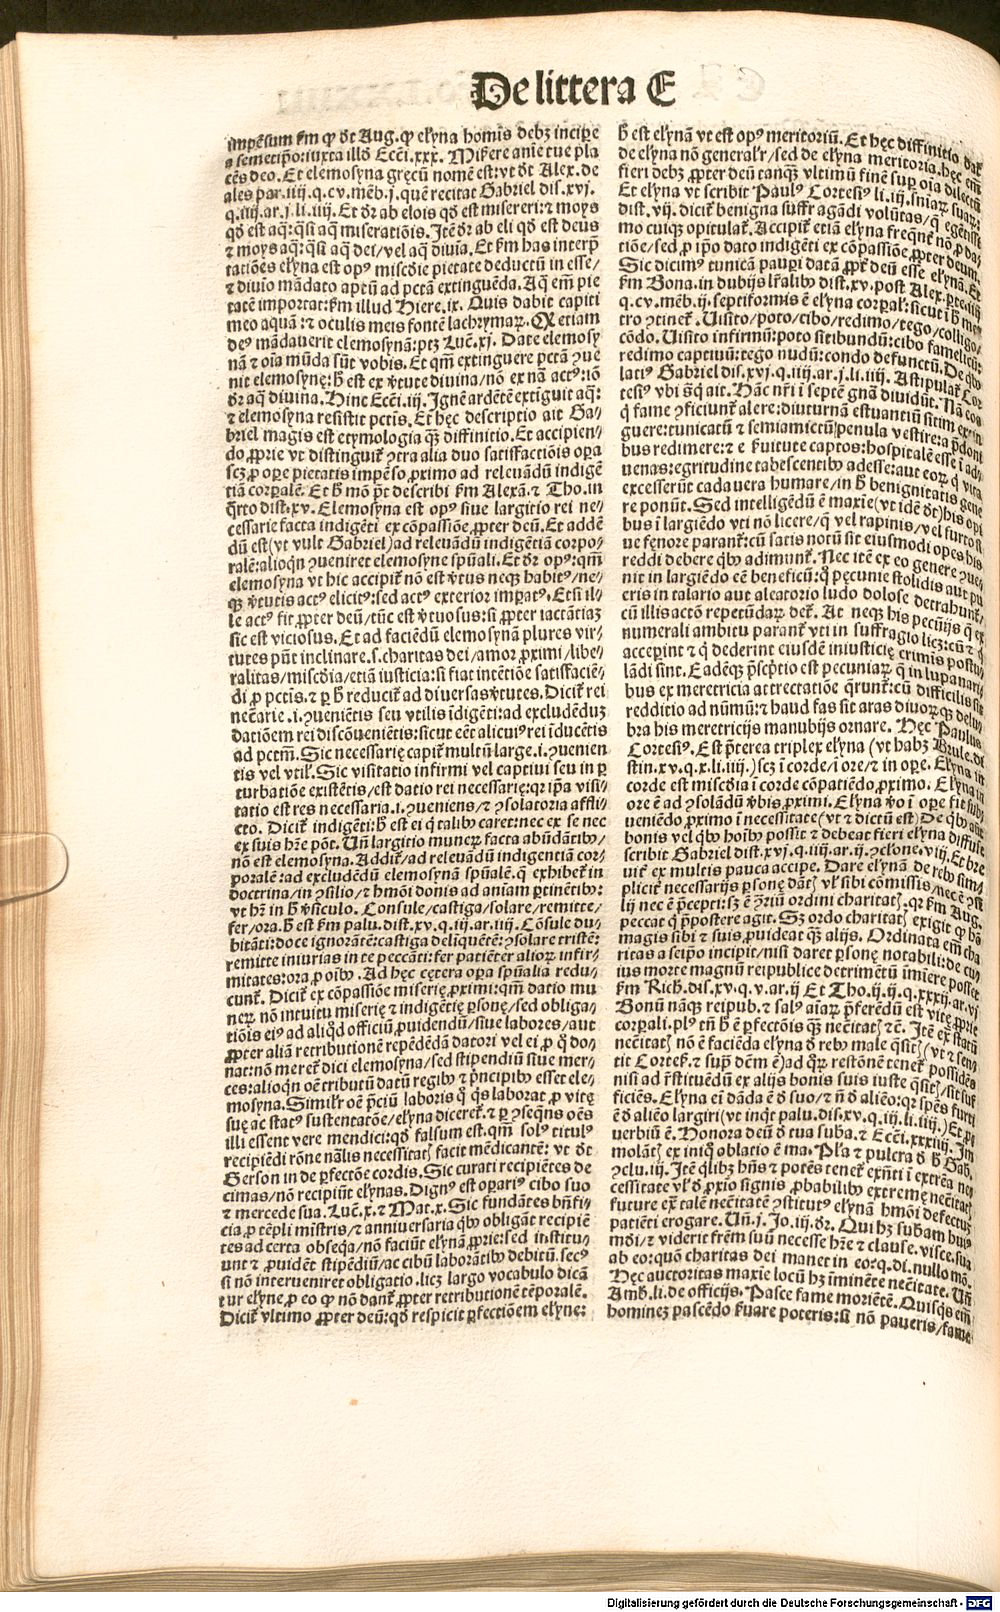 De littera E
impēsum k̄m ꝙ dr̄ Aug. ꝙ elyna homis debꝫ incipe
a semetip̄o: iuxta illđ Ecci. xxx. Miꝭere anīe tue pla
cēs deo. Et elemosyna grecū nomē est: vt dr̄ Alex. de
ales par. iiij. q. cv. mēb. j. quē recitat Gabriel dis. xvj.
q. iiij. ar. j. li. iiij. Et dr̄ ab elois qđ est misereri: ⁊ moys
qđ est aq̄: qs̄i aq̄ miseratiōis. Itē dr̄ ab eli qđ est deus
⁊ moys aq̄: qs̄i aq̄ dei/ vel aq̄ diuīa. Et k̄m has interp̄
tatiōes elyna est opꝰ miscđie pietate deductū in esse/
⁊ diuīo mādato aptū ad pctā extinguēda. Aq̄ em̄ pie
tatē importat: k̄m illud Hiere. ix. Quis dabit capiti
meo aquā: ⁊ oculis meis fontē lachrymaꝝ. Qꝛ etiam
deꝰ mādauerit elemosynā: ptꝫ Luc̄. xj. Date elemosy
nā ⁊ oīa mūda sūt vobis. Et qm̄ extinguere pctā ꝯue
nit elemosynę: h̄ est ex v̄tute diuina/ nō ex nā actꝰ: iō
dr̄ aq̄ diuina. Hinc Ecci. iij. Ignē ardētē extiguit aq̄:
⁊ elemosyna resistit pctis. Et hęc descriptio ait Ga-
briel magis est etymologia q̄ꝫ diffinitio. Et accipien-
do ꝓprie vt distinguit̄ ꝯtra alia duo satiffactiōis oꝑa
scꝫ ꝓ oꝑe pietatis impēso ꝓximo ad releuādū indigē
tiā corꝑalē. Et h̄ mō pōt describi k̄m Alexā. ⁊ Tho. in
q̄rto dist. xv. Elemosyna est opꝰ siue largitio rei ne-
cessarie facta indigēti ex cōpassiōe ꝓpter deū. Et addē
dū est (vt vult Gabriel) ad releuādū indigētiā corpo-
ralē: alioqn̄ ꝯueniret elemosyne spūali. Et dr̄ opꝰ: qm̄
elemosyna vt hic accipit̄ nō est v̄tus neqꝫ habitꝰ/ ne-
qꝫ v̄tutis actꝰ elicitꝰ: sed actꝰ exterior imꝑatꝰ. Et si il-
le actꝰ fit ꝓpter deū/ tūc est v̄tuosus: si ꝓpter iactātiaꝫ
sic est viciosus. Et ad faciēdū elemosynā plures vir-
tutes pn̄t inclinare. s. charitas dei/ amor ꝓximi/ libe-
ralitas/ miscđia/ etiā iusticia: si fiat intētiōe satiffaciē-
di ꝓ pctis. ⁊ ꝑ h̄ reducit̄ ad diuersas v̄tutes. Dicit̄ rei
necēarie. i. ꝯueniētis seu vtilis īdigēti: ad excludēduꝫ
datiōem rei discōueniētis: sicut eēt alicuiꝰ rei iducētis
ad pctm̄. Sic necessarię capit̄ multū large. i. ꝯuenien
tis vel vtil̄. Sic visitatio infirmi vel captiui seu in ꝑ
turbatiōe existētis/ est datio rei necessarię: qꝛ ip̄a visi-
tatio est res necessaria. i. ꝯueniens/ ⁊ ꝯsolatoria affli-
cto. Dicit̄ indigēti: h̄ est ei q̄ talibꝰ caret: nec ex se nec
ex suis hr̄e pōt. Un̄ largitio muneꝝ facta abūdātibꝰ/
nō est elemosyna. Addit̄/ ad releuādū indigentiā cor-
ꝑalē: ad excludēdū elemosynā spūalē. q̄ exhibet̄ in
doctrina/ in ꝯsilio/ ⁊ hmōi donis ad aniam ꝑtinētibꝰ:
vt hr̄ in h̄ v̄siculo. Consule/ castiga/ solare/ remitte/
fer/ ora. h̄ est k̄m palu. dist. xv. q. iij. ar. iiij. Cōsule du-
bitāti: doce ignorātē: castiga delīquētē: ꝯsolare tristē:
remitte iniurias in te peccāti: fer patiēter alioꝝ infir-
mitates: ora ꝓ oībꝰ. Ad hęc cętera oꝑa spūalia redu-
cunt̄. Dicit̄ ex cōpassiōe miserię ꝓximi: qm̄ datio mu
neꝝ nō intuitu miserię ⁊ indigētię ꝑsonę/ sed obliga-
tiōis eiꝰ ad aliqđ officiū ꝓuidendū/ siue labores/ aut
ꝓpter aliā retributionē repēdēdā datori vel ei ꝓ q̊ do-
nat: nō meret̄ dici elemosyna/ sed stipendiū siue mer-
ces: alioqn̄ oē tributū datū regibꝰ ⁊ p̄ncipibꝰ esset ele-
mosyna. Simil̄r oē p̄ciū laboris q̊ q̄s laborat ꝓ vitę
suę ac statꝰ sustentatōe/ elyna diceret̄. ⁊ ꝑ ꝯseqn̄s oēs
illi essent vere mendici: qđ falsum est. qm̄ solꝰ titulꝰ
recipiēdi rōne nālis necessitatꝭ facit mēdicantē: vt dr̄
Gerson in de ꝑfectōe cordis. Sic curati recipiētes de
cimas/ nō recipiūt elynas. Dignꝰ est oꝑariꝰ cibo suo
⁊ mercede sua. Luc̄. x. ⁊ Mat. x. Sic fundātes bn̄fi-
cia ꝓ tēpli mīstris/ ⁊ anniuersaria q̄bꝰ obligāt recipiē
tes ad certa obseqa/ nō faciūt elynā ꝓprie: sed institu-
unt ⁊ ꝓuidēt stipēdiū/ ac cibū laborātibꝰ debitū. secꝰ
si nō interueniret obligatio. licꝫ largo vocabulo dicā
tur elyne/ ꝓ eo ꝙ nō dant̄ ꝓpter retributionē tēporalē.
Dicit̄ vltimo ꝓpter deū: qđ respicit ꝑfectiōem elyne:
h̄ est elynā vt est opꝰ meritoriū. Et hęc diffinitio dat̄
de elyna nō general̄r/ sed de elyna meritoria. hęc em̄
fieri debꝫ ꝓpter deū tanq̄ꝫ vltimū finē suꝑ oīa dilectū
Et elyna vt scribit Paulꝰ Cortesiꝰ li. iij. sniaꝝ suaꝝ:
dist. vij. dicit̄ benigna suffragādi volūtas/ q̄ egenissi
mo cuiqꝫ opitulat̄. Accipit̄ etiā elyna freqn̄t̄ nō ꝓ da-
tiōe/ sed ꝓ ip̄o dato indigēti ex cōpassiōe ꝓpter deum.
Sic dicimꝰ tunicā pauꝑi datā ꝓpt̄ deū esse elynā. Et
k̄m Bona. in dubijs lr̄alibꝰ dist. xv. post Alex. ꝑte. iiij
q. cv. mēb. ij. septiformis ē elyna corꝑal̄: sicut ī h̄ me-
tro ꝯtinet̄. Uisito/ poto/ cibo/ redimo/ tego/ colligo/
cōdo. Uisito infirmū: poto sitibundū: cibo famelicū:
redimo captiuū: tego nudū: condo defunctū. De q̄bꝰ
latiꝰ Gabriel dis. xvj. q. iiij. ar. j. li. iiij. Astipulat̄ Cor
tesiꝰ vbi s̄ q̄ ait. Hāc nr̄i ī septē gn̄a diuidūt. Nā eos
q̄ fame ꝯficiunt̄ alere: diuturnā estuantiū sitim extin
guere: tunicatū ⁊ semiamictū penula vestire: a p̄doni
bus redimere: ⁊ e k̄uitute captos: hospitalē esse ī ad-
uenas: egritudine tabescentibꝰ adesse: aut eoꝝ q̄ vita
excesserūt cadauera humare/ in h̄ benignitatis gene
re ponūt. Sed intelligēdū ē maxīe (vt idē dr̄) his opi
bus ī largiēdo vti nō licere/ q̄ vel rapinis/ vel furto si
ue fęnore parant̄: cū satis notū sit eiusmodi opes his
reddi debere q̄bꝰ adimunt̄. Nec itē ex eo genere ꝯue-
nit in largiēdo eē beneficū: q̄ pęcunię stolidis aut pu
eris in talario aut aleatorio ludo dolose detrahunt̄/
cū illis actōn repetūdaꝝ det̄. At neqꝫ his pecūijs q̄ ex
numerali ambitu parant̄ vti in suffragio licꝫ: cū ⁊ q̄
accepint ⁊ q̄ dederint eiusdē iniusticię crimis postu-
lādi sint. Eadēqꝫ p̄scptio est pecuniaꝝ q̄ in lupanari-
bus ex meretricia attrectatiōe q̄runt̄: cū difficilis sit
redditio ad nūmū: ⁊ haud fas sit aras diuoꝝqꝫ delu-
bra his meretricijs manubijs ornare. Hęc Paulus
Cortesiꝰ. Est p̄terea triplex elyna (vt habꝫ Brule. di
stin. xv. q. x. li. iiij.) scꝫ ī corde/ ī ore/ ⁊ in oꝑe. Elyna in
corde est miscđia ī corde cōpatiēdo ꝓximo. Elyna in
ore ē ad ꝯsolādū v̄bis ꝓximi. Elyna v̊o ī oꝑe fit sub-
ueniēdo ꝓximo ī necessitate (vt ⁊ dictū est) De q̄bꝰ aūt
bonis vel q̄bꝰ hoībꝰ possit ⁊ debeat fieri elyna diffuse
scribit Gabriel dist. xvj. q. iiij. ar. ij. ꝯclone. viij. Et bre
uit̄ ex multis pauca accipe. Dare elynā de rebꝰ sim-
plicit̄ necessarijs ꝑsonę dātꝭ vl̄ sibi cōmissis/ nec ē ꝯsi
lij nec ē p̄cepti: sꝫ ē ꝯriū ordini charitatꝭ. qꝛ k̄m Aug.
peccat q̄ p̄postere agit. Sꝫ ordo charitatꝭ exigit ꝙ hō
magis sibi ⁊ suis ꝓuideat q̄ꝫ alijs. Ordinata em̄ cha
ritas a seip̄o incipit/ nisi daret ꝑsonę notabili: de cu-
ius morte magnū reipublice detrimētū īminere posset
k̄m Rich̄. dis. xv. q. v. ar. ij Et Tho. ij. ij. q. xxxij. ar. vj
Bonū nāqꝫ reipub. ⁊ salꝰ aīaꝝ p̄ferēdū est vitę ꝓprie
corꝑali. plꝰ tn̄ h̄ ē ꝑfectōis q̄ꝫ necītatꝭ ⁊c̄. Itē ex̄ statū
necītatꝭ nō ē faciēda elyna đ rebꝰ male q̄sitꝭ (vt ⁊ sen-
tit Cortes̄. ⁊ sup̄ dc̄m ē) ad q̄ꝝ restōnē tenet̄ possidēs
nisi ad r̄stituēdū ex alijs bonis suis iuste q̄sitꝭ/ sit suf
ficiēs. Elyna ei dāda ē đ suo/ ⁊ n̄ đ aliēo: qꝛ spēs furti
ē đ aliēo largiri (vt inqt palu. dis. xv. q. iij. li. iiij.) Et ꝓ
uerbiū ē. Honora deū đ tua suba. ⁊ Ecci. xxxiiij. Im
molātꝭ ex iniq̊ oblatio ē ma. Pl̄a ⁊ pulcra đ h̄ Gab.
ꝯclu. iij. Itē q̄libꝫ hn̄s ⁊ potēs tenet̄ exn̄ti ī extrēa ne-
cessitate vl̄ đ ꝓxio signis ꝓbabilibꝰ extremę necītatꝭ
future ex̄ talē necītatē ꝯstitutꝰ elynā hmōi defectuꝫ
patiēti erogare. Un̄. j. Jo. iij. dr̄. Qui hꝫ subam huiꝰ
mōi/ ⁊ viderit frēm suū necesse hr̄e ⁊ clause. visce. sua
ab eo: quō charitas dei manet in eo: q. di. nullo mō.
Hęc auctoritas maxīe locū hꝫ īminēte necītate. Un̄
Amb̄. li. de officijs. Pasce fame moriētē. Quisqꝫ em̄
hominez pascēdo k̄uare poteris: si nō paueris/ fame
Digitalisierung gefördert durch die Deutsche Forschungsgemeinschaft - DFG